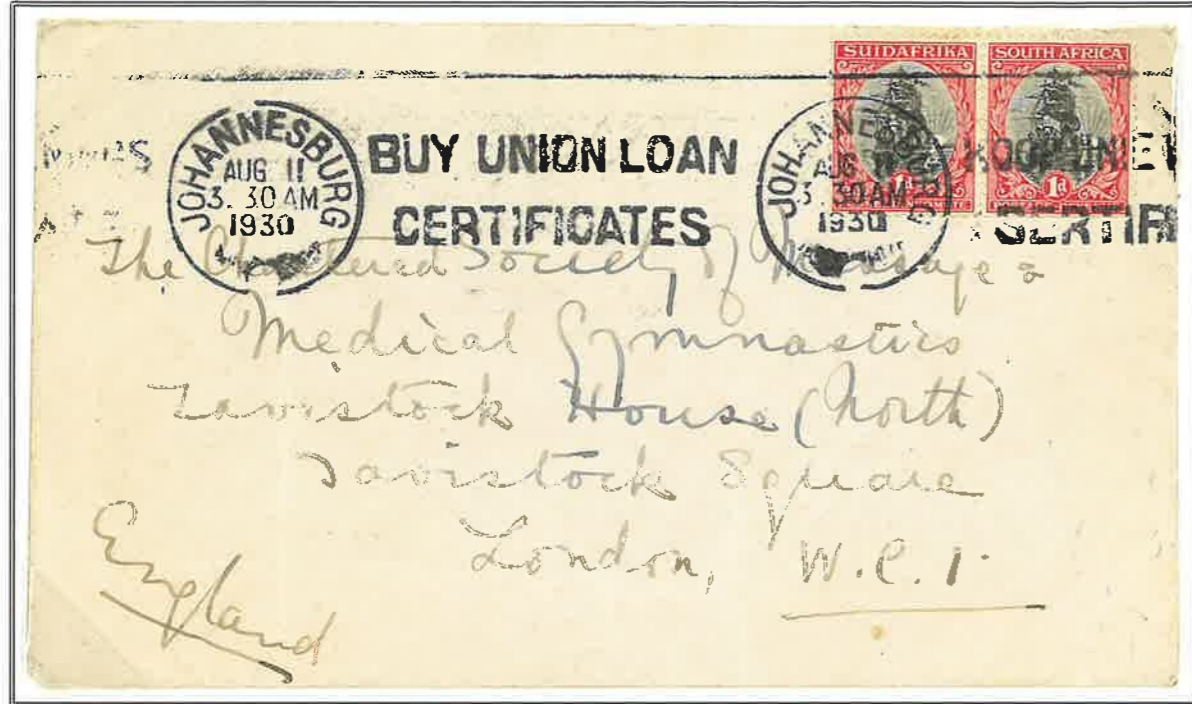 SUIDAFRIKA SOUTH AFRICA
1d 1d
JOHANNESBURG
AUG 11
3. 30 AM
1930
BUY UNION LOAN
CERTIFICATES
JOHANNESBURG
AUG 11
3. 30 AM
1930
KOOP UNIE
SERTIFI
The Chartered Society of Massage &
Medical Gymnastics
Tavistock House (North)
Tavistock Square
London, W.C.1.
England